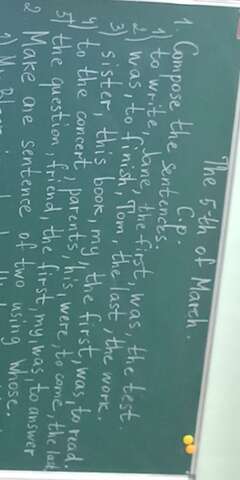 The 5th of March.
C.p.
1. Compose the sentences.
1) to write, Jane, the first, was, the test.
2) was, to finish, Tom, the last, the work.
3) sister, this book, my, the first, was, to read.
4) to the concert, parents, his, were, to come, the last
5) the question, friend, the first, my, was, to answer
2 Make one sentence of two using whose.